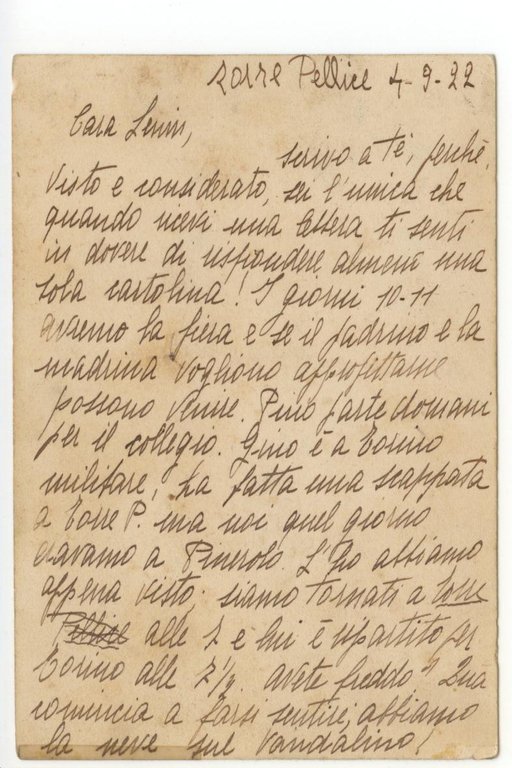 Torre Pellice 4-9-22
Cara Lenin,
scrivo a te, perchè,
visto e considerato, sei l'unica che
quando ricevi una lettera ti senti
in dovere di rispondere almeno una
sola cartolina! I giorni 10-11
avremo la fiera e se il padrino e la
madrina vogliono approfittarne
possono venire. Pino parte domani
per il collegio. Gino è a Torino
militare, ha fatta una scappata
a Torre P. ma noi quel giorno
eravamo a Pinerolo. L'ho abbiamo
appena visto; siamo tornati a Torre
Pellice alle 7 e lui è ripartito per
Torino alle 7½. avete freddo? Qua
comincia a farsi sentire, abbiamo
la neve sul Vandalino!